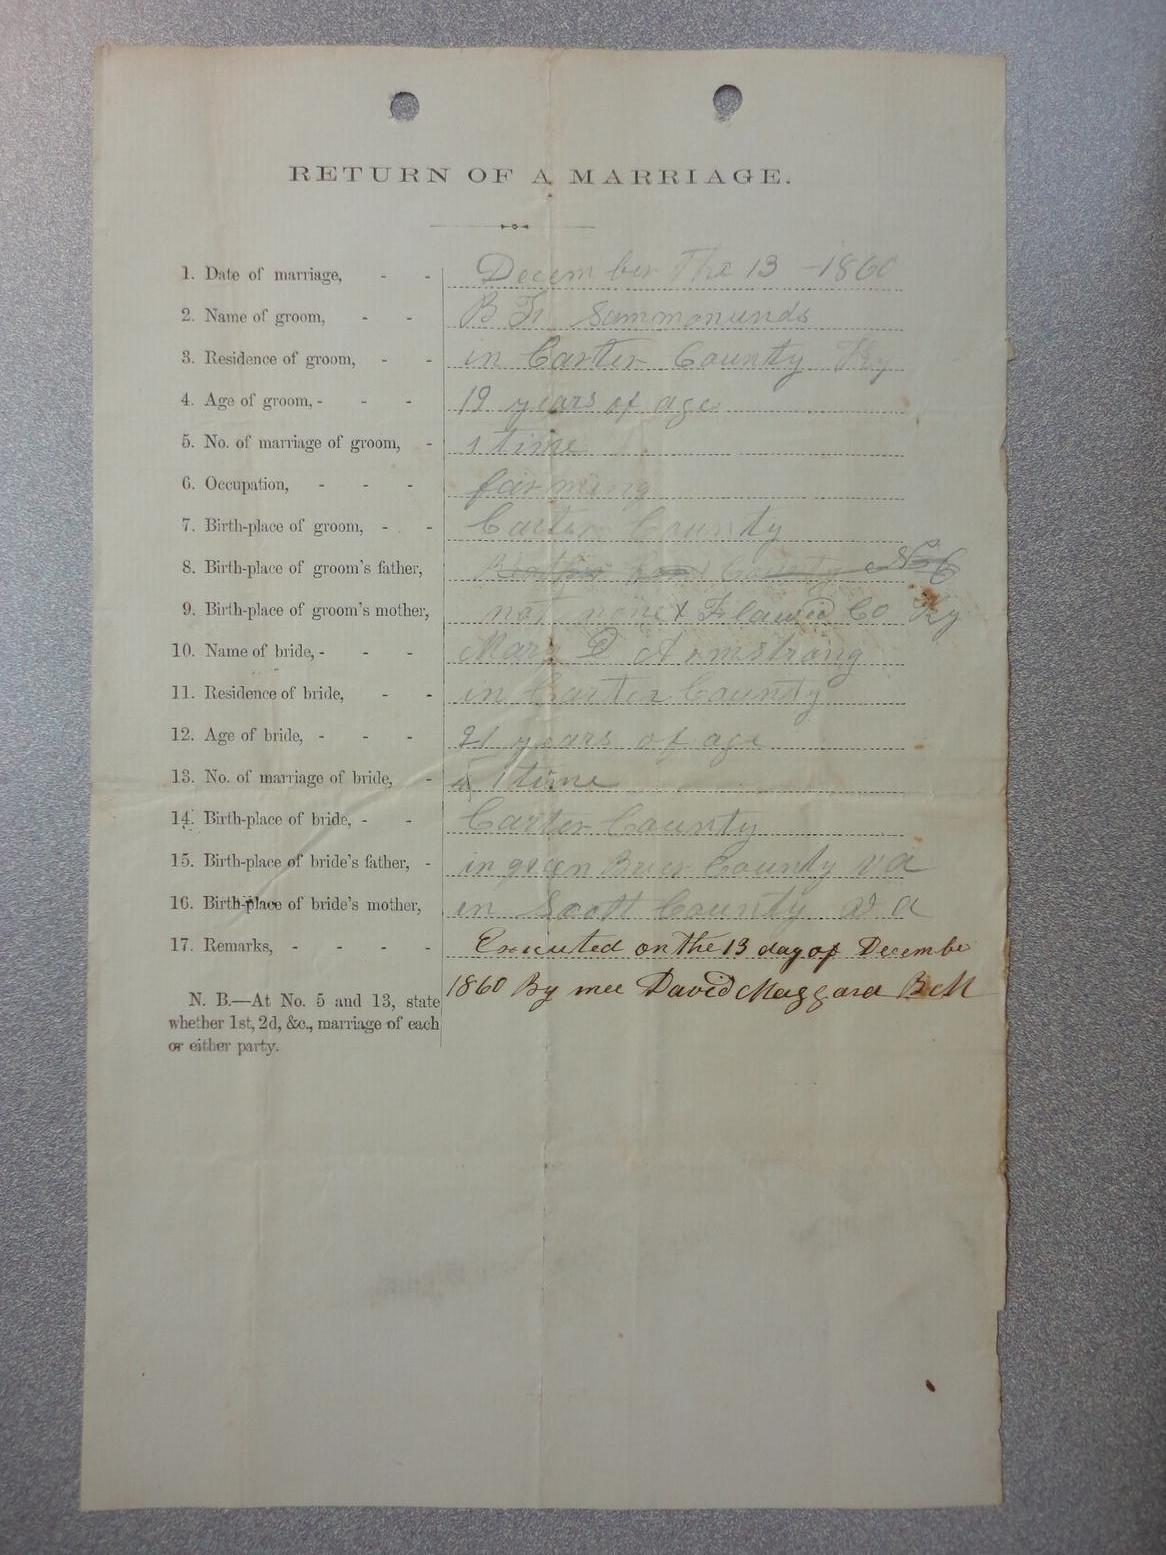 RETURN OF A MARRIAGE.
1. Date of marriage, - - December The 13 - 1860
2. Name of groom, - - B F Sammonunds
3. Residence of groom, - - in Carter County Ky
4. Age of groom, - - - 19 years of age
5. No. of marriage of groom, - 1 time
6. Occupation, - - - farming
7. Birth-place of groom, - - Carter County
8. Birth-place of groom's father, County
9. Birth-place of groom's mother, not none Flawid Co Ky
10. Name of bride, - - - Mary D Armstrong
11. Residence of bride, - - in Carter County
12. Age of bride, - - - 21 years of age
13. No. of marriage of bride, - 1 time
14. Birth-place of bride, - - Carter County
15. Birth-place of bride's father, - in green Brier County va
16. Birth-place of bride's mother, in Scott County va
17. Remarks, - - - - Executed on the 13 day of Decembe
1860 By mee David Maggard
N. B.—At No. 5 and 13, state
whether 1st, 2d, &c., marriage of each
or either party.